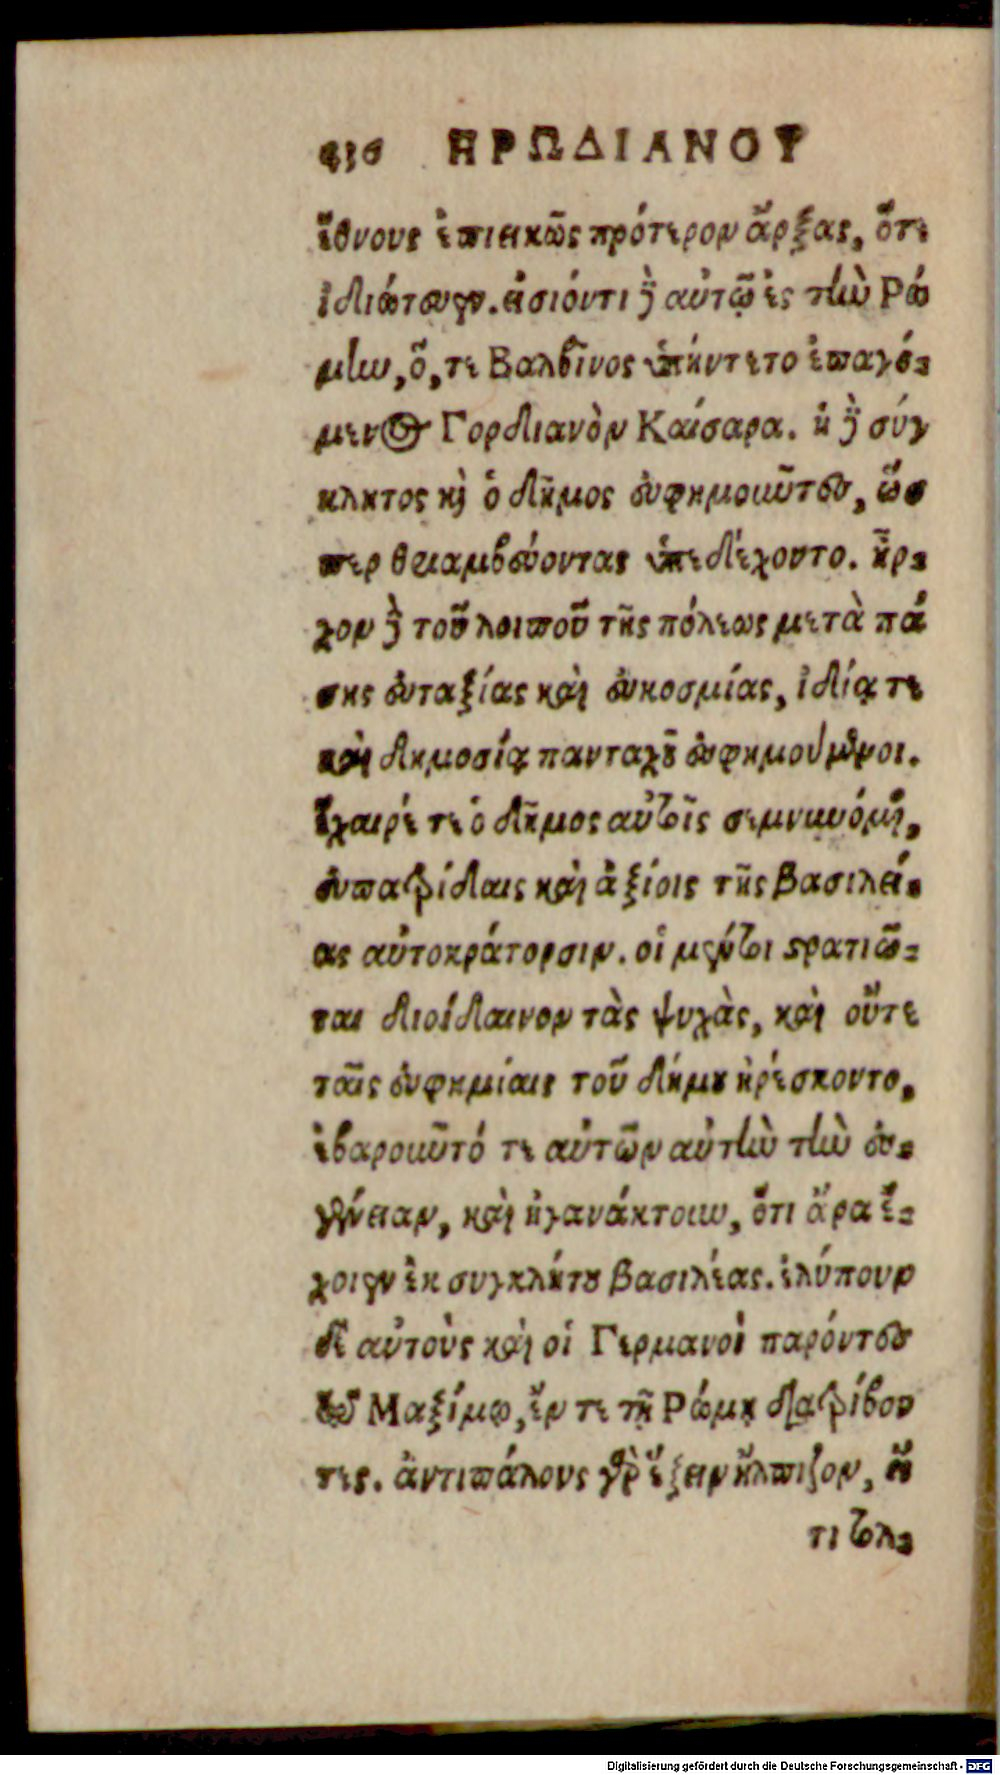 436 ΗΡΩΔΙΑΝΟΥ
ἔθνους ἐπιεικῶς πρότερον ἄρξας, ὅτε
ἰδιώτευεν. εἰσιόντι δὲ αὐτῷ ἐς τὴν Ρώ
μην, ὅ, τε Βαλβῖνος ὑπήντετο ἐπαγό-
μενος Γορδιανὸν Καίσαρα. ἡ δὲ σύγ
κλητος καὶ ὁ δῆμος εὐφημοῦντες, ὥσ
περ θριαμβεύοντας ὑπεδέχοντο. ἦρ-
χον δὲ τοῦ λοιποῦ τῆς πόλεως μετὰ πά
σης εὐταξίας καὶ εὐκοσμίας, ἰδίᾳ τε
καὶ δημοσίᾳ πανταχοῦ εὐφημούμενοι.
ἔχαιρέ τε ὁ δῆμος αὐτοῖς σεμνυνόμενος,
εὐπατρίδαις καὶ ἀξίοις τῆς βασιλεί-
ας αὐτοκράτορσιν. οἱ μέντοι στρατιῶ-
ται διοίδαινον τὰς ψυχὰς, καὶ οὔτε
ταῖς εὐφημίαις τοῦ δήμου ἠρέσκοντο,
ἐβαροῦντό τε αὐτῶν αὐτὴν τὴν εὐ-
γένειαν, καὶ ἠγανάκτουν, ὅτι ἄρα ἔ-
χοιεν ἐκ συγκλήτου βασιλέας. ἐλύπουν
δὲ αὐτοὺς καὶ οἱ Γερμανοὶ παρόντες
τῷ Μαξίμῳ, ἔν τε τῇ Ρώμῃ διατρίβον
τες. ἀντιπάλους γὰρ ἕξειν ἤλπιζον, εἴ
τι τολ-
Digitalisierung gefördert durch die Deutsche Forschungsgemeinschaft - DFG